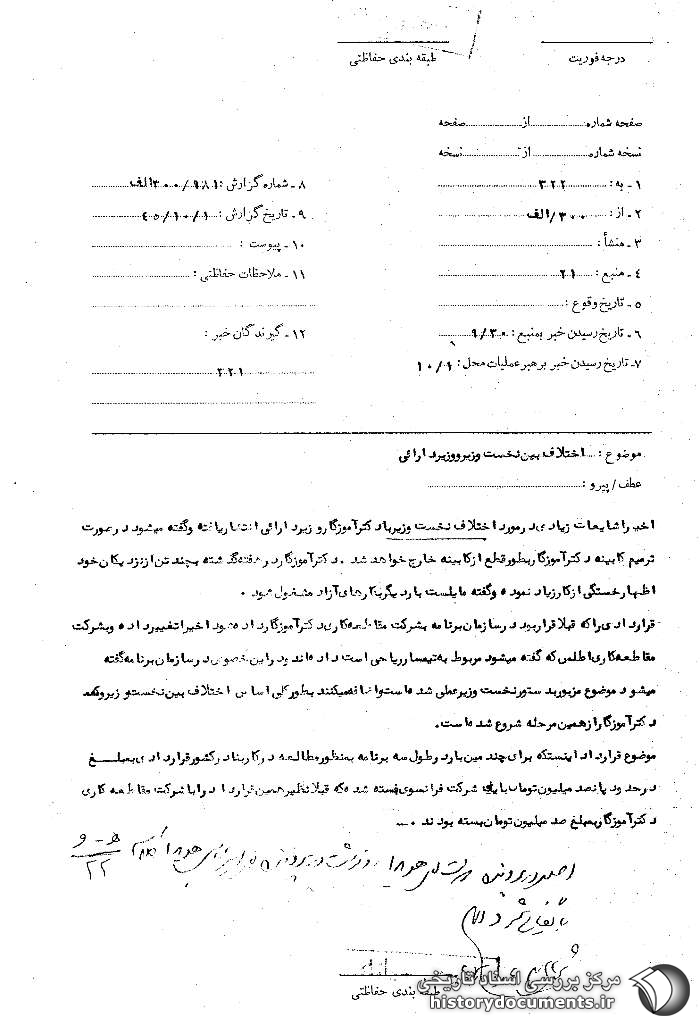 درجه فوریت
طبقه بندی حفاظتی
صفحه شماره ... از ... صفحه
نسخه شماره ... از ... نسخه
۱ ـ به : ۳۲۲
۲ ـ از : ۳۰۰/الف
۳ ـ منشأ :
۴ ـ منبع : ۲۱
۵ ـ تاریخ وقوع :
۶ ـ تاریخ رسیدن خبر بمنبع : ۹/۳۰
۷ـ تاریخ رسیدن خبر برهبر عملیات محل : ۱۰/۱
۸ ـ شماره گزارش : ۳۰۰/۹۸۱الف
۹ ـ تاریخ گزارش : ۴۵/۱۰/۱
۱۰ ـ پیوست :
۱۱ ـ ملاحظات حفاظتی :
۱۲ ـ گیرندگان خبر :
۲۲۱
موضوع : اختلاف بین نخست وزیر و وزیر دارائی
عطف / پیرو :
اخیرا شایعات زیادی در مورد اختلاف نخست وزیر با دکتر آموزگار وزیر دارائی انتشار یافته و گفته میشود در صورت
ترمیم کابینه دکتر آموزگار بطور قطع از کابینه خارج خواهد شد . دکتر آموزگار در هفته گذشته بچند تن از نزدیکان خود
اظهار خستگی از کار زیاد نموده و گفته مایلست بار دیگر بکارهای آزاد مشغول شود .
قراردادی را که قبلا قرار بود در سازمان برنامه بشرکت مقاطعه کاری دکتر آموزگار داده شود اخیرا تغییر داده و بشرکت
مقاطعه کاری اطلس که گفته میشود مربوط به تیمسار ریاحی است داده اند و در این خصوص در سازمان برنامه گفته
میشود موضوع مزبور بدستور نخست وزیر عملی شده است و اضافه میکنند بطور کلی اساس اختلاف بین نخست وزیر و
دکتر آموزگار از همین مرحله شروع شده است.
موضوع قرارداد اینستکه برای چندمین بار در طول سه برنامه بمنظور مطالعه در کار بنادر کشور قراردادی بمبلغ
در حدود پانصد میلیون تومان با یک شرکت فرانسوی بسته شده که قبلا نظیر همین قرارداد را با شرکت مقاطعه کاری
دکتر آموزگار بمبلغ صد میلیون تومان بسته بودند .
اصل در پرونده
۲۲
طبقه بندی حفاظتی
مرکز بررسی اسناد تاریخی
historydocuments.ir